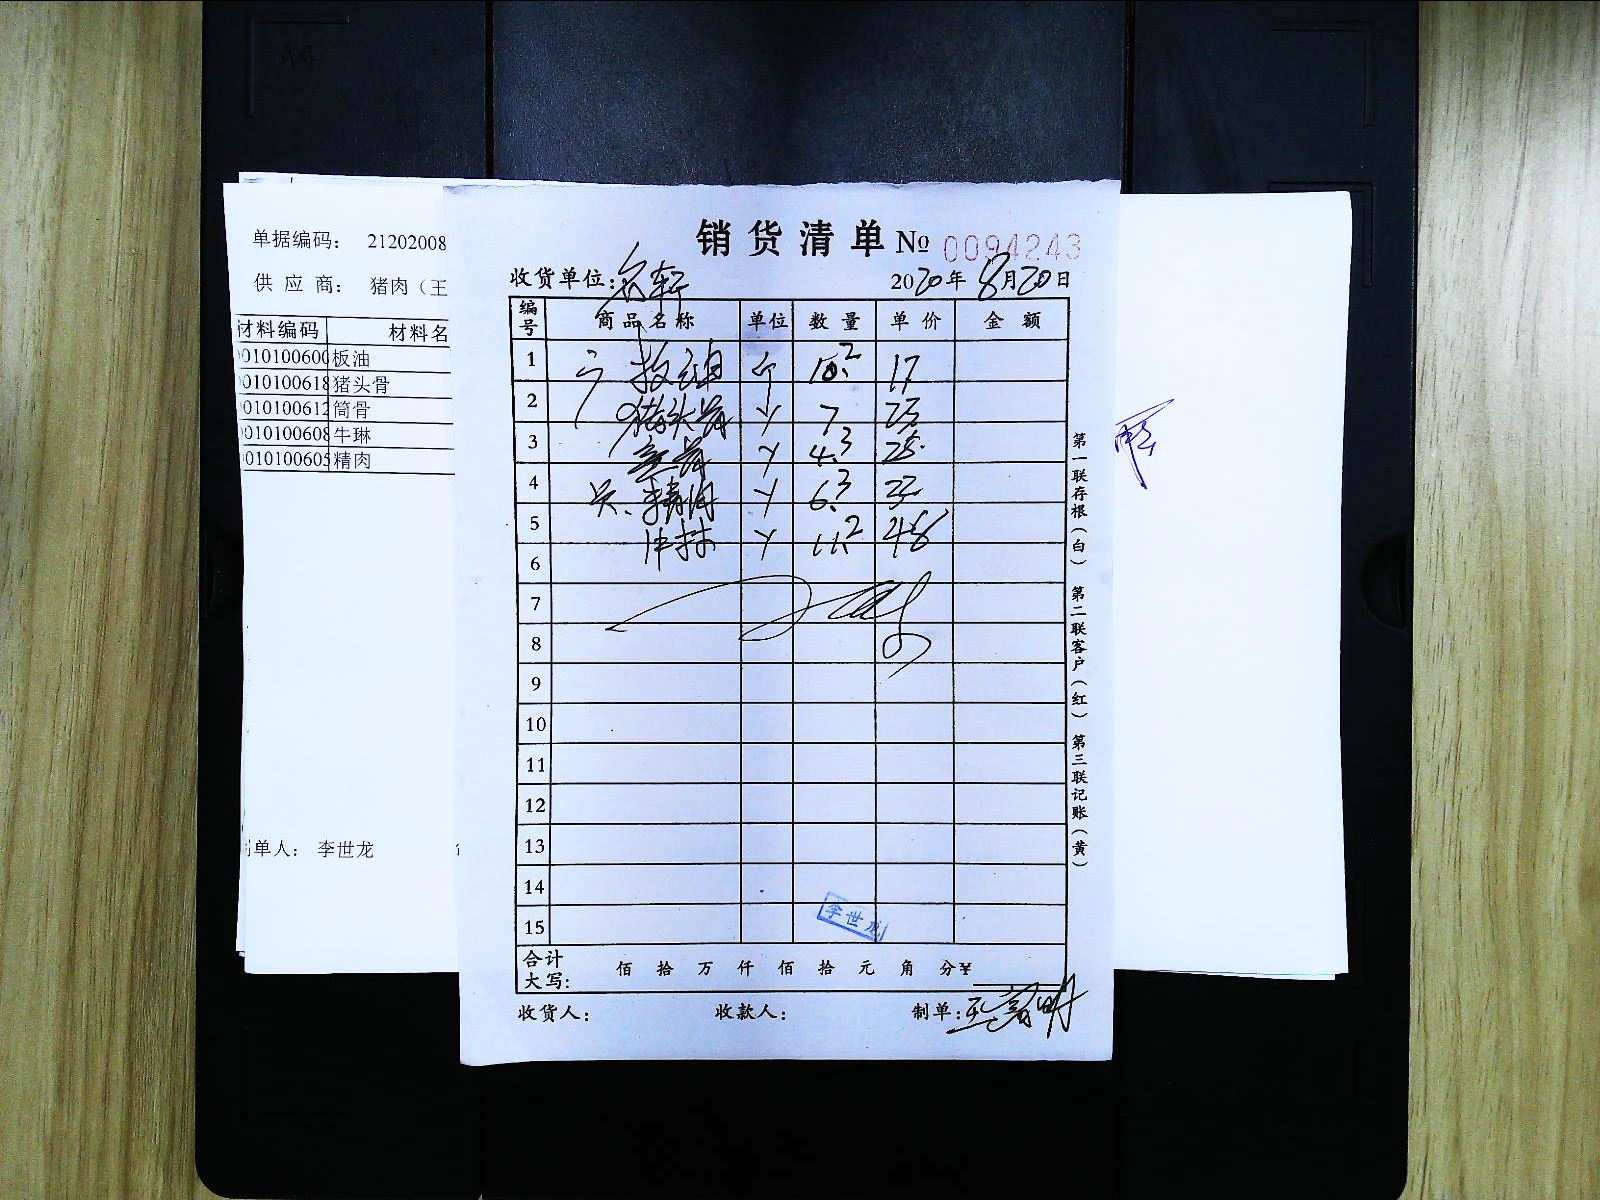 单据编码： 21202008
供 应 商： 猪肉（王
材料编码 材料名
0010100600 板油
0010100618 猪头骨
0010100612 筒骨
0010100608 牛琳
0010100605 精肉
单人： 李世龙
销货清单 № 0094243
收货单位：名轩 2020年8月20日
编号 商品名称 单位 数量 单价 金额
1 板油 斤 10.2 17
2 猪头骨 7 23
3 筒骨 4.3 25
4 精肉 6.3 23
5 牛林 11.2 48
6
7
8
9
10
11
12
13
14
15
李世龙
合计大写： 佰 拾 万 仟 佰 拾 元 角 分¥
收货人： 收款人： 制单：
第一联存根（白） 第二联客户（红） 第三联记账（黄）